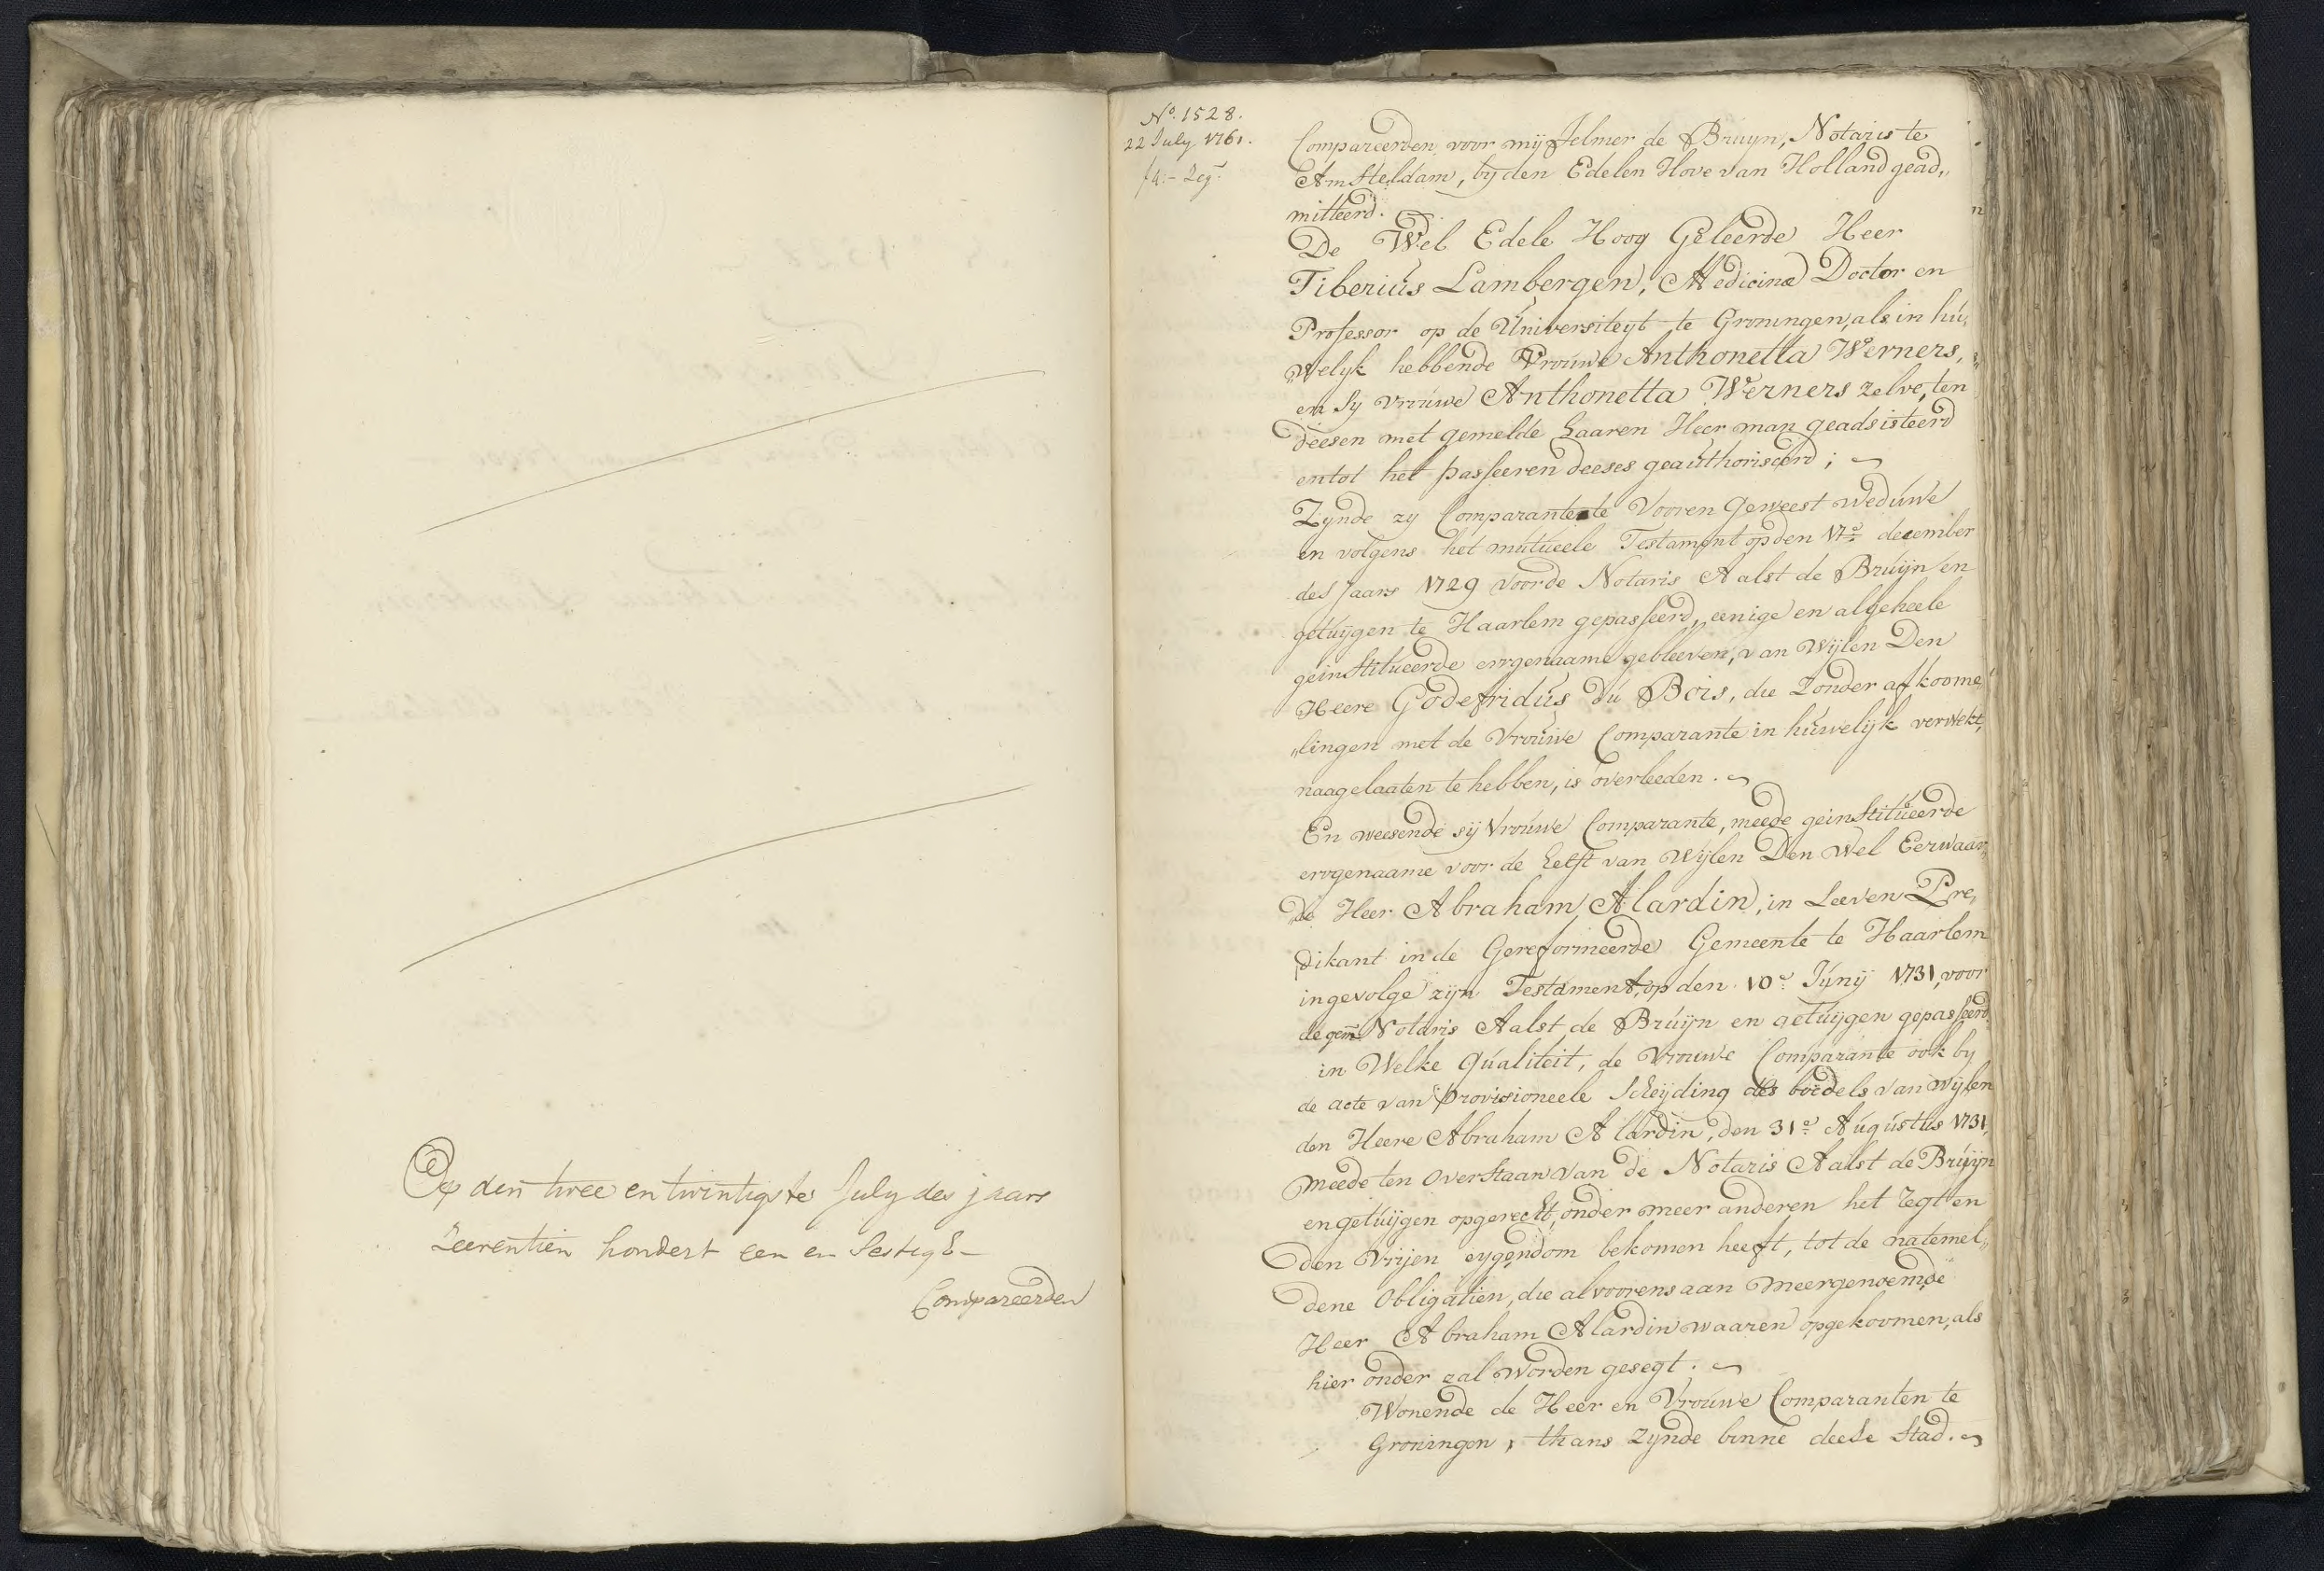 Op den twee en twintigste July des jaars
Zeeventien hondert een en Sestig E-
Compareerden
No. 1528.
22 July 1761.
f4:- Zeg.
Compareerden voor mij Jelmer de Bruyn, Notaris te
Amsteldam, bij den Edelen Hove van Holland gead„
mitteerd.
De Wel Edele Hoog Geleerde Heer
Tiberius Lambergen, Medicinæ Doctor en
Professor op de Universiteyt te Groningen, als in hu„
„welyk hebbende Vrouwe Anthonetta Werners,
en Sy vrouwe Anthonetta Werners zelve, ten
deesen met gemelde haaren Heer man geadsisteerd
en tot het passeeren deeses geauthoriseerd;
Zynde zy Comparante te Vooren geweest weduwe
en volgens het mutueele Testament op den 17e december
des Jaars 1729 voor de Notaris Aalst de Bruijn en
getuijgen te Haarlem gepasseerd, eenige en algeheele
geinstitueerde errgenaame gebleeven, van Wijlen Den
Heere Godefridus du Bois, die Zonder afkoome„
„lingen met de Vrouwe Comparante in huwelijk verwekt,
naagelaaten te hebben, is overleeden.
En weesende sij Vrouwe Comparante, meede geinstitueerde
ervgenaame voor de helft van Wijlen Den Wel Eerwaar„
„de Heer Abraham Alardin, in Leeven Pre„
dikant in de Gereformeerde Gemeente te Haarlem
ingevolge zijn Testament, op den 10e Junij 1731, voor
de gem. Notaris Aalst de Bruijn en getuijgen gepasseerd
in Welke Qualiteit, de Vrouwe Comparante ook by
de acte van Provisioneele Scheijding des boedels van wijlen
den Heere Abraham Alardin, den 31e Augustus 1731,
meede ten Overstaan van de Notaris Aalst de Bruijn
en getuijgen opgerecht, onder meer anderen het regt en
den Vrijen eygendom bekomen heeft, tot de natemel„
dene Obligatien, die alvoorens aan Meergenoemde
Heer Abraham Alardin waaren opgekoomen, als
hier onder zal worden gesegt.
Wonende de Heer en Vrouwe Comparanten te
Groningen, thans zynde binne deese Stad.